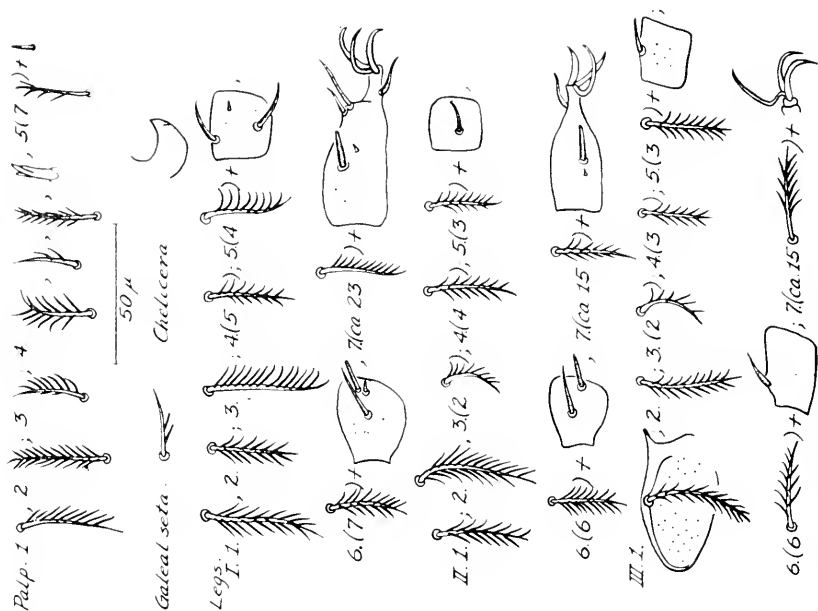 Palp. 1 , 2 ; 3 ; 4 , , , 5(7 )+
50 µ
Galeal seta. Chelicera
Legs:
I. 1. , 2. ; 3. ; 4.(5 ); 5.(4 )+ ,
6.(7 )+ , 7.(ca 23 )+
II. 1. ; 2. , 3.(2 ); 4.(4 ), 5.(3 )+ ,
6.(6 )+ , 7.(ca 15 )+
III. 1. , 2. ; 3.(2 ), 4.(3 ); 5.(3 )+ ;
6.(6 )+ ; 7.(ca. 15 )+